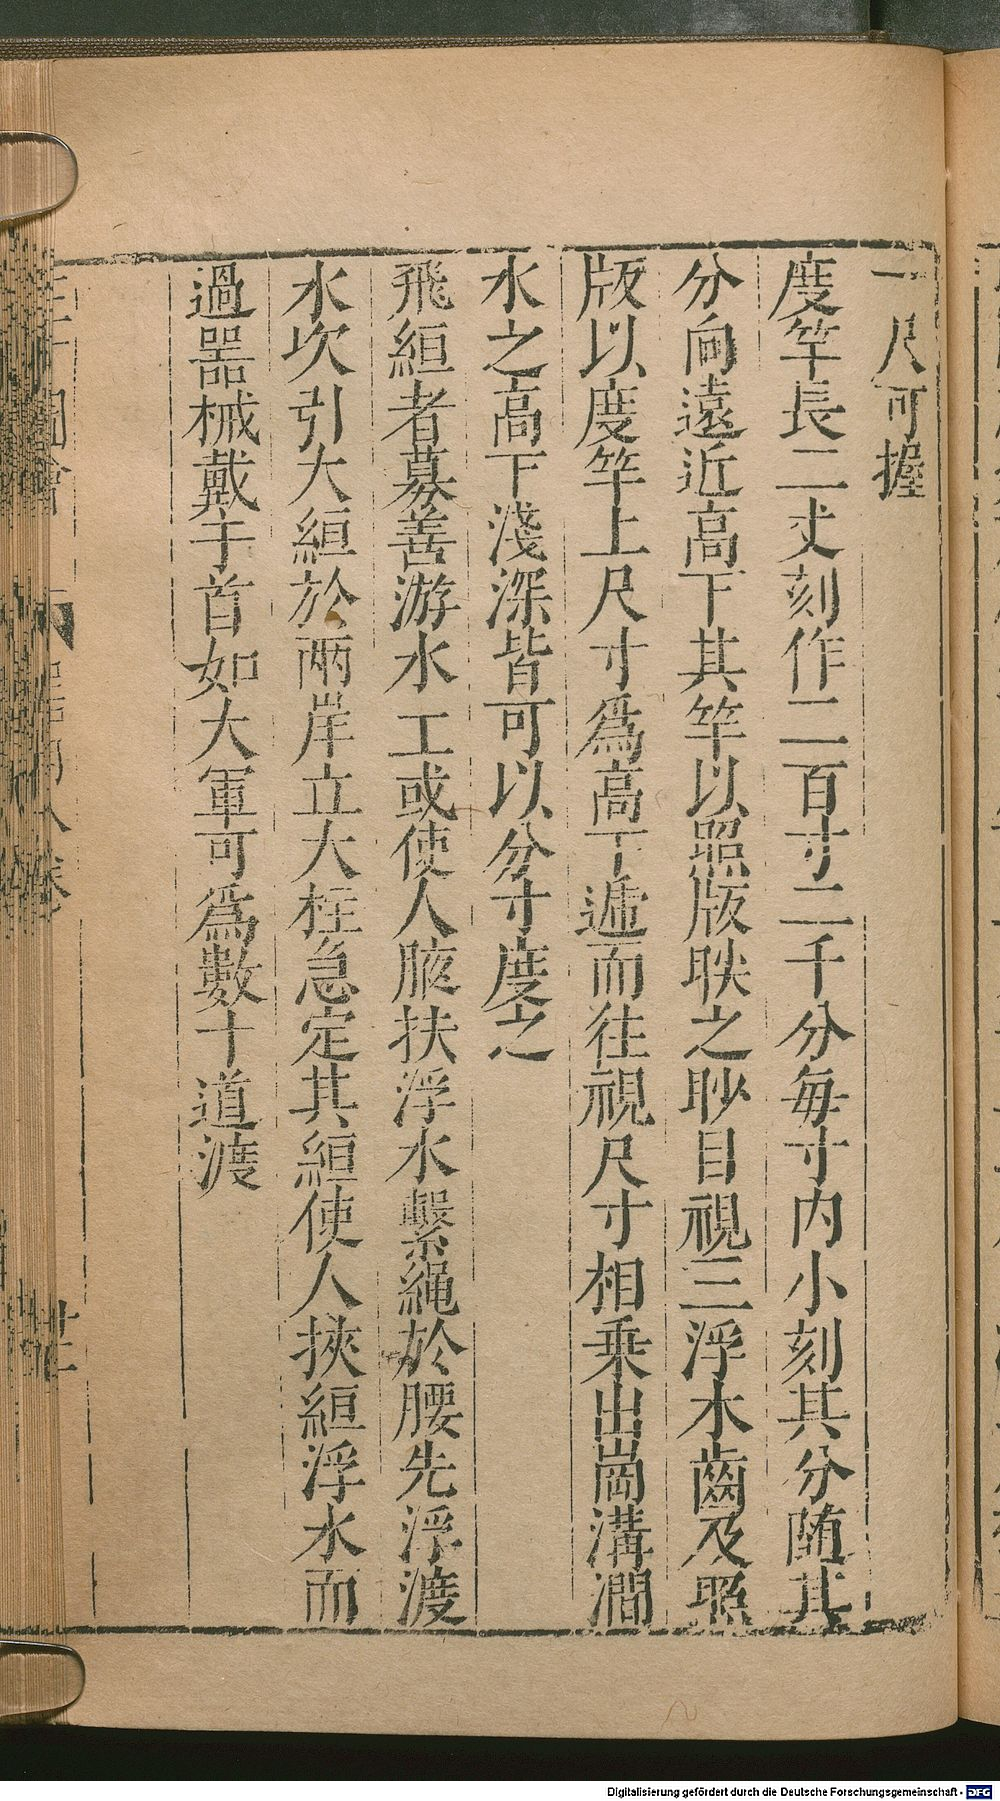 一尺可握
度竿長二丈刻作二百寸二千分每寸内小刻其分随其
分向遠近高下其竿以照版映之眇目視三浮木齒及照
版以度竿上尺寸爲高下遞而往視尺寸相乗出崗溝澗
水之高下淺深皆可以分寸度之
飛絙者募善游水工或使人腋扶浮水繫繩於腰先浮渡
水次引大絙於兩岸立大柱急定其絙使人挾絙浮水而
過器械戴于首如大軍可爲數十道渡
Digitalisierung gefördert durch die Deutsche Forschungsgemeinschaft - DFG